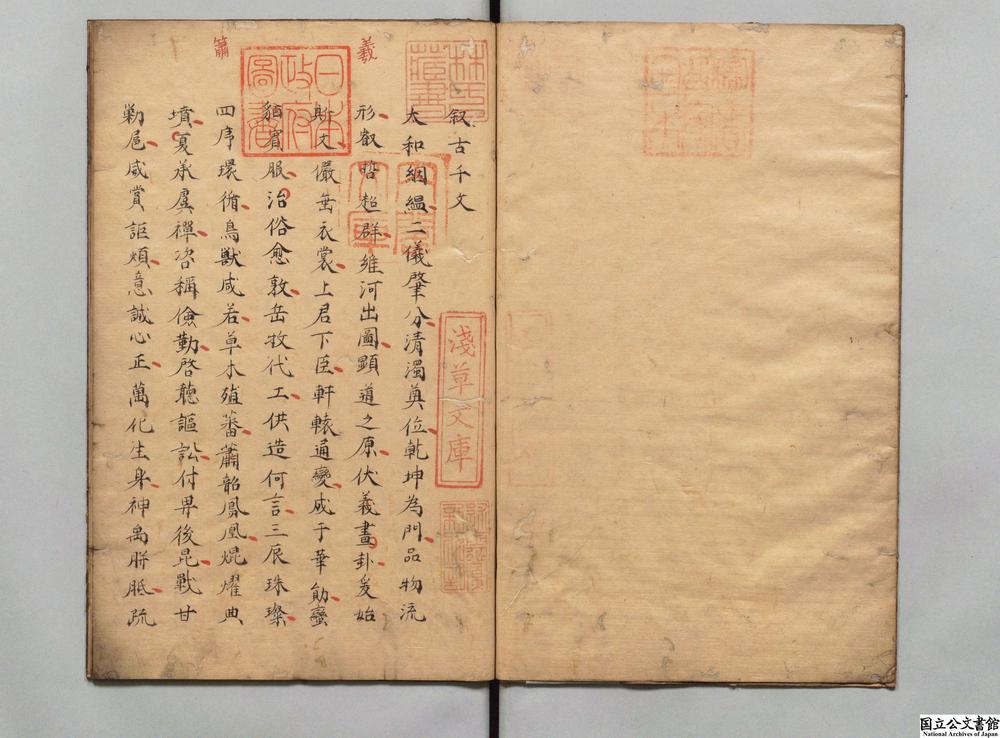 林氏藏書
叙古千文
淺草文庫
大和絪縕二儀肇分清濁奠位乾坤為門品物流
羲
形叡哲超群維河出圖顯道之原伏義畫卦爰始
日本政府圖書
斯文儼垂衣裳上君下臣軒轅通變咸于華勛蠻
貊賓服治俗愈敦岳牧代工供造何言三辰珠璨
簫
四序環循鳥獸咸若草木殖蕃蕭韶鳳凰焜燿典
墳夏承虞禪咨稱儉勤啓聽謳訟付畀後昆戰甘
勦扈咸賞詎煩意誠心正萬化生身神禹胼胝疏
国立公文書館
National Archives of Japan